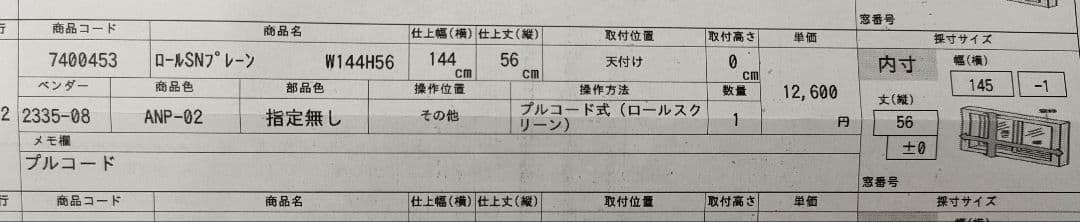 窓番号
行 商品コード 商品名 仕上幅(横) 仕上丈(縦) 取付位置 取付高さ 単価 採寸サイズ
7400453 ﾛｰﾙSNﾌﾟﾚｰﾝ W144H56 144 cm 56 cm 天付け 0 cm 12,600 円 内寸 幅(横)
145 -1
ベンダー 商品色 部品色 操作位置 操作方法 数量 丈(縦)
2 2335-08 ANP-02 指定無し その他 プルコード式(ロールスク 1 56
リーン)
±0
メモ欄
プルコード
窓番号
行 商品コード 商品名 仕上幅(横) 仕上丈(縦) 取付位置 取付高さ 単価 採寸サイズ
幅(横)